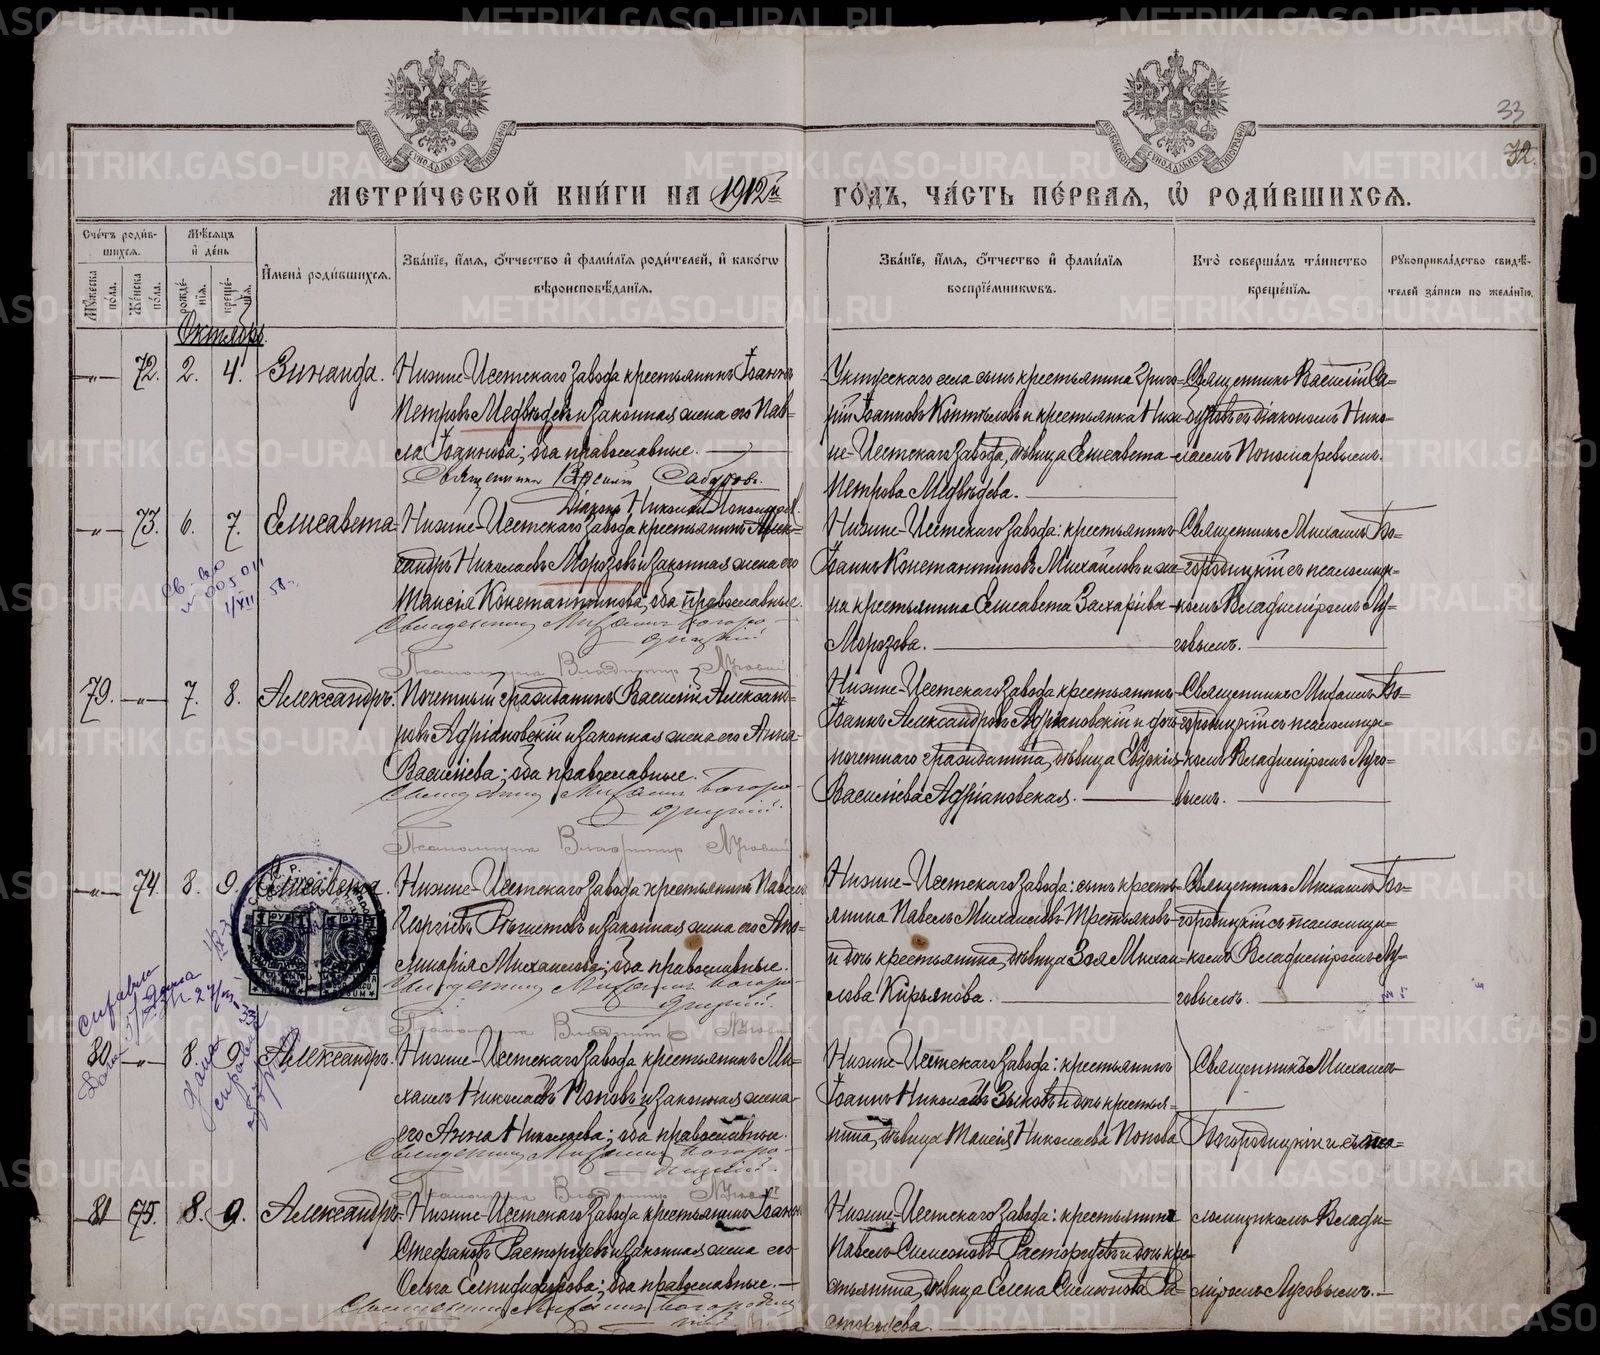 33
32.
МЕТРИ́ЧЕСКОЙ КНИ́ГИ НА 1912й ГО́ДЪ, ЧА́СТЬ ПЕ́РВАѦ, Ѡ҆ РОДИ́ВШИХСѦ.
Сче́тъ роди́в-
шихсѧ.
Мѣ́сѧцъ
и҆ де́нь
И҆мена̀ роди́вшихсѧ.
Зва́нїе, и҆́мѧ, ѻ҆́тчество и҆ фами́лїѧ роди́телей, и҆ како́гѡ
вѣроисповѣ́данїѧ.
Зва́нїе, и҆́мѧ, ѻ҆́тчество и҆ фами́лїѧ
воспрїе́мниковъ.
Кто̀ соверша́лъ та́инство
креще́нїѧ.
Рꙋкоприкла́дство свидѣ́-
телей за́писи по жела́нїю.
Мꙋ́жеска
по́ла.
Же́нска
по́ла.
рожде́-
нїѧ.
креще́-
нїѧ.
Октябрь.
72. 2. 4. Зинаида.
Нижне-Исетскаго завода крестьянинъ Іоаннъ
Петровъ Медвѣдевъ и законная жена его Пав-
ла Іоаннова; оба православные.
Священникъ Василій Сабуровъ.
Діаконъ Николай Пономаревъ.
села сынъ крестьянина Григо-
рій Іоанновъ Коптѣловъ и крестьянка Ниж-
не-Исетскаго завода, дѣвица Елисавета
Петрова Медвѣдева.
Священникъ Василій Са-
буровъ съ діакономъ Нико-
лаемъ Пономаревымъ.
73. 6. 7. Елисавета
Нижне-Исетскаго завода крестьянинъ Алек-
сандръ Николаевъ Морозовъ и законная жена его
Таисія Константинова; оба православные.
Священникъ Михаилъ Богоро-
дицкій
Псаломщикъ Владимиръ Луговый
Нижне-Исетскаго завода: крестьянинъ
Іоаннъ Константиновъ Михайловъ и же-
на крестьянина Елисавета Захаріева
Морозова.
Священникъ Михаилъ Бо-
городицкій съ псаломщи-
комъ Владиміромъ Лу-
говымъ.
1/XII 58
79. 7. 8. Александръ.
Почетный гражданинъ Василій Александ-
ровъ Адріановскій и законная жена его Анна
Васильева; оба православные.
Священникъ Михаилъ Богоро-
дицкій.
Псаломщикъ Владимиръ Луговый
Нижне-Исетскаго завода крестьянинъ
Іоаннъ Александровъ Адріановскій и дочь
почетнаго гражданина, дѣвица Евдокія
Василіева Адріановская.
Священникъ Михаилъ Бо-
городицкій съ псаломщи-
комъ Владиміромъ Луго-
вымъ.
74. 8. 9. Елисавета.
Нижне-Исетскаго завода крестьянинъ Павелъ
Георгіевъ и законная жена его Апо-
линарія Михаилова; оба православные.
Священникъ Михаилъ Богоро-
дицкій.
Псаломщикъ Владимиръ Луговый
Нижне-Исетскаго завода: сынъ кресть-
янина Павелъ Михаиловъ Третьяковъ
и дочь крестьянина, дѣвица Зоя Михаи-
лова Кирьянова.
Священникъ Михаилъ Бо-
городицкій съ псаломщи-
комъ Владиміромъ Лу-
говымъ.
80. 8. 9. Александръ.
Нижне-Исетскаго завода крестьянинъ Ми-
хаилъ Николаевъ Поповъ и законная жена
его Анна Николаева; оба православные.
Священникъ Михаилъ Богоро-
дицкій.
Псаломщикъ Владимиръ Луговый
Нижне-Исетскаго завода: крестьянинъ
Іоаннъ Николаевъ Зыковъ и дочь крестья-
нина, дѣвица Таисія Николаева Попова
Священникъ Михаилъ
Богородицкій и съ пса-
81 75. 8. 9. Александръ
Нижне-Исетскаго завода крестьянинъ Іоаннъ
Стефановъ Расторгуевъ и законная жена его
Ольга; оба православные.
Священникъ Михаилъ Богородиц
кій
Нижне-Исетскаго завода: крестьянинъ
Павелъ Симеоновъ Расторгуевъ и дочь кре-
стьянина, дѣвица Елена Симеонова Ра-
сторгуева.
ломщикомъ Влади-
міромъ Луговымъ.
METRIKI.GASO-URAL.RU